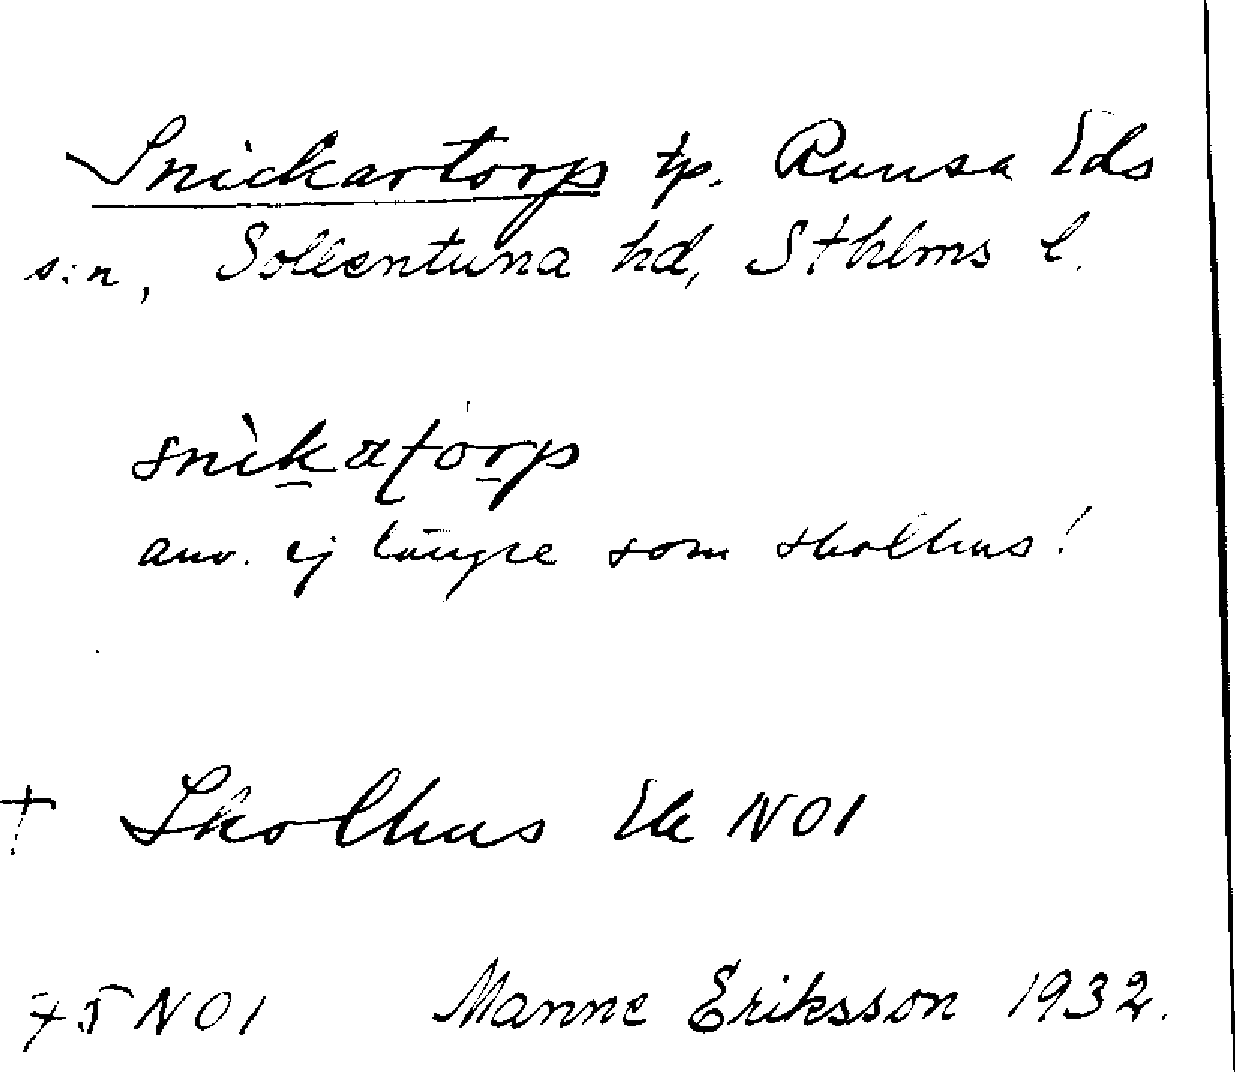 Snickartorp tp. Runsa Eds
s:n, Sollentuna hd, Sthlms l.
snìkatorp
anv. ej längre som skolhus!
† Skolhus Ek NO1
75 NO1 Manne Eriksson 1932.